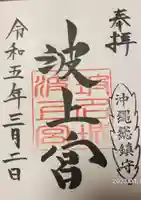 奉拝
沖縄総鎮守
波上宮
令和五年三月二日